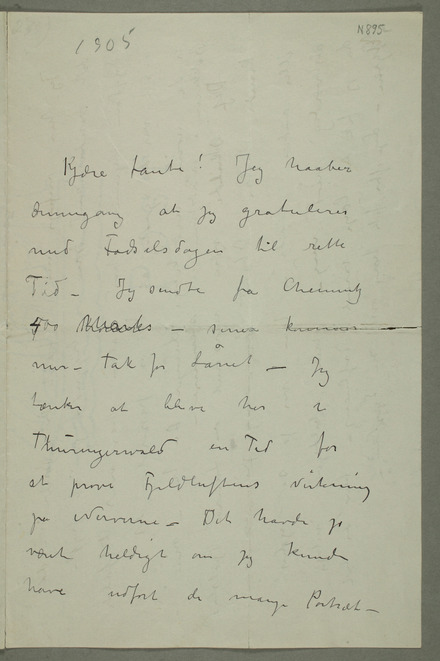 1905
N 895
Kjære tante! Jeg haaber
denne gang at jeg gratulerer
med Fødselsdagen til rette
Tid – Jeg sendte fra Chemnitz
400 Marks – senere kommer
mer – Tak for Lånet – Jeg
tænker at blive her i
Thüringerwald en Tid for
at prøve Fjeldluftens Virkning
på Nerverne – Det havde jo
været heldigt om jeg kunde
have udført de mange Portræt –